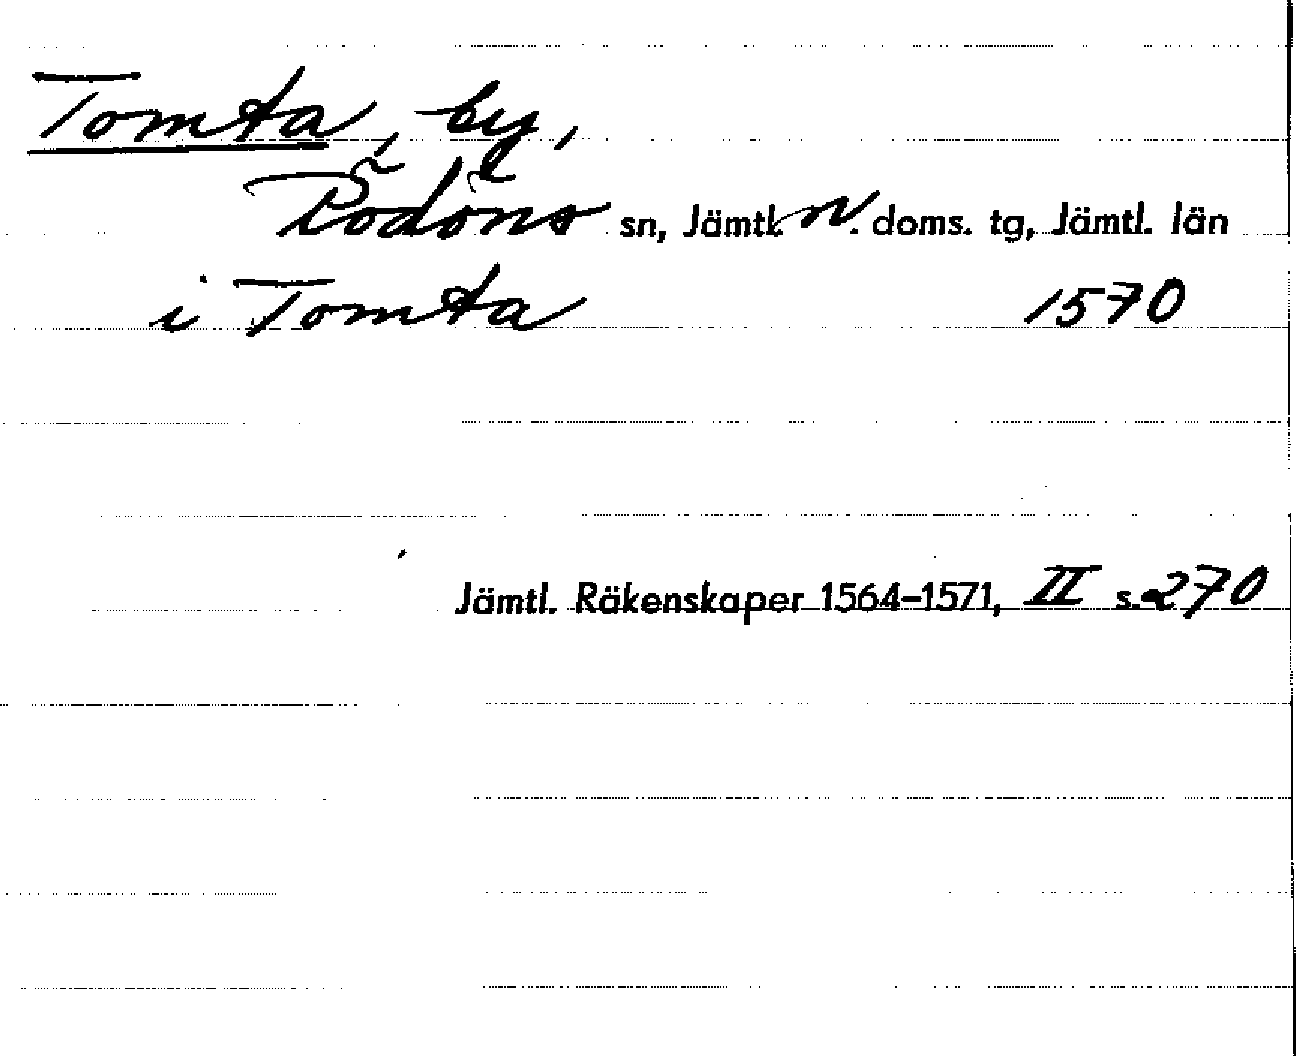 Tomta, by,
Rödöns sn, Jämtl. N. doms. tg, Jämtl. län
i Tomta 1570
Jämtl. Räkenskaper 1564-1571, II s. 270